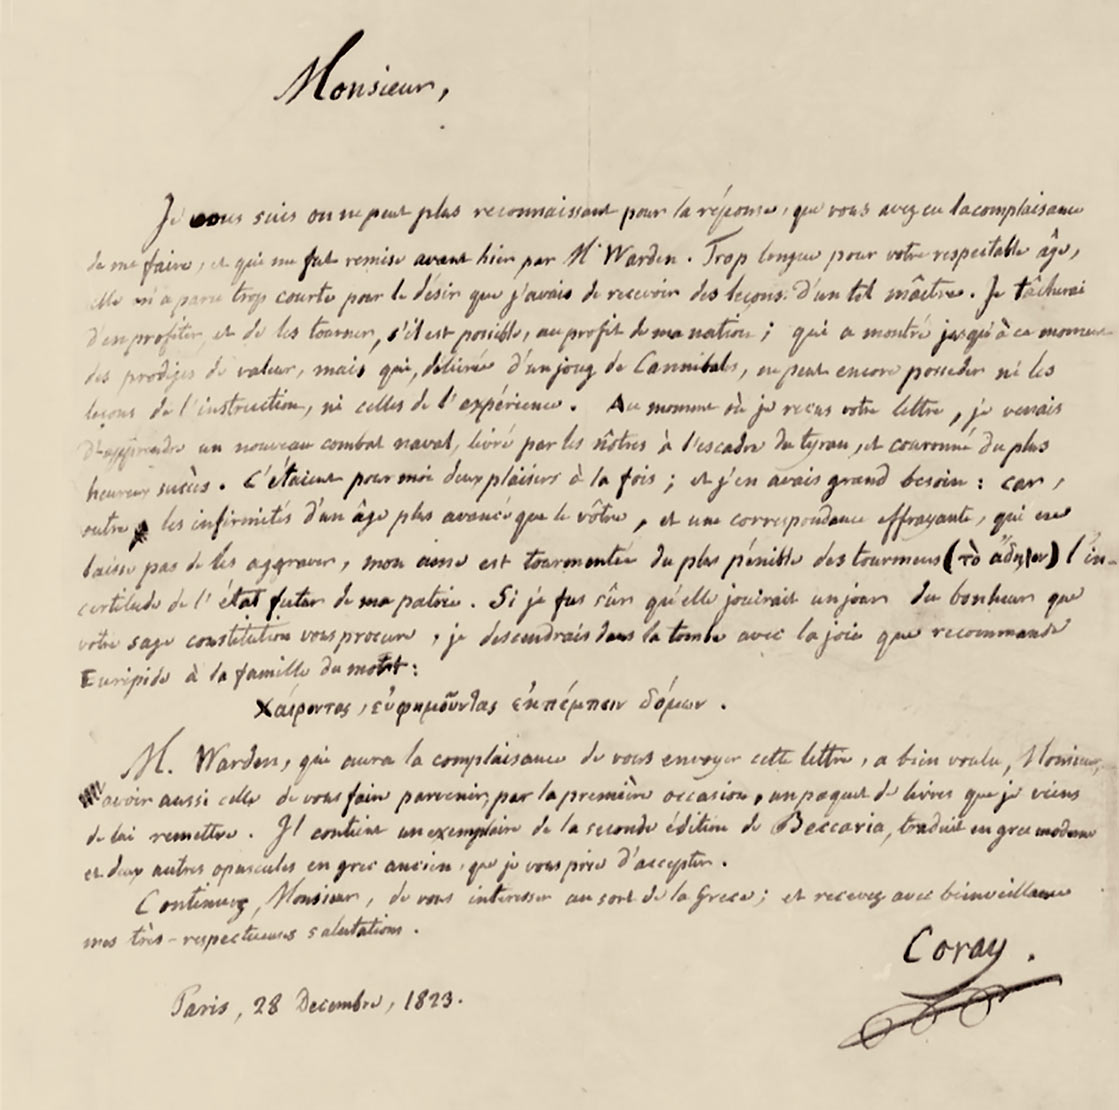 Monsieur,
Je vous suis on ne peut plus reconnaissant pour la réponse, que vous avez eu la complaisance
de me faire, et qui me fut remise avant hier par Mr Warden. Trop longue pour votre respectable âge,
elle m'a paru trop courte pour le désir que j'avais de recevoir des leçons d'un tel maître. Je tâcherai
d'en profiter, et de les tourner, s'il est possible, au profit de ma nation; qui a montré jusqu'à ce moment
des prodiges de valeur, mais qui, délivrée d'un joug de Cannibales, ne peut encore posséder ni les
leçons de l'instruction, ni celles de l'expérience. Au moment où je reçus votre lettre, je venais
d'apprendre un nouveau combat naval, livré par les nôtres à l'escadre du tyran, et couronné du plus
heureux succès. C'étaient pour moi deux plaisirs à la fois; et j'en avais grand besoin: car,
outre les infirmités d'un âge plus avancé que le vôtre, et une correspondance effrayante, qui ne
laisse pas de les aggraver, mon ame est tourmentée du plus pénible des tourmens (τὸ ἄδηλον) l'in-
certitude de l'état futur de ma patrie. Si je fus sûr qu'elle jouirait un jour du bonheur que
votre sage constitution vous procure, je descendrais dans la tombe avec la joie que recommande
Euripide à la famille du mort:
Χαίροντας, εὐφημοῦντας ἐκπέμπειν δόμων.
M. Warden, qui aura la complaisance de vous envoyer cette lettre, a bien voulu, Monsieur,
avoir aussi celle de vous faire parvenir, par la première occasion, un paquet de livres que je viens
de lui remettre. Il contient un exemplaire de la seconde édition de Beccaria, traduit en grec moderne
et deux autres opuscules en grec ancien, que je vous prie d'accepter.
Continuez, Monsieur, de vous intéresser au sort de la Grece; et recevez avec bienveillance
mes très-respectueuses salutations.
Coray.
Paris, 28 Decembre, 1823.